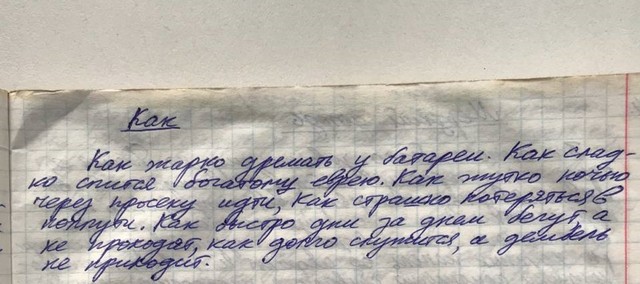 Как
Как жарко дремать у батареи. Как слад-
ко спится богатому еврею. Как жутко ночью
через просеку идти, Как страшно потеряться в
полпути. Как быстро дни за днем бегут, а
не проходят, как долго служится, а дембель
не приходит.